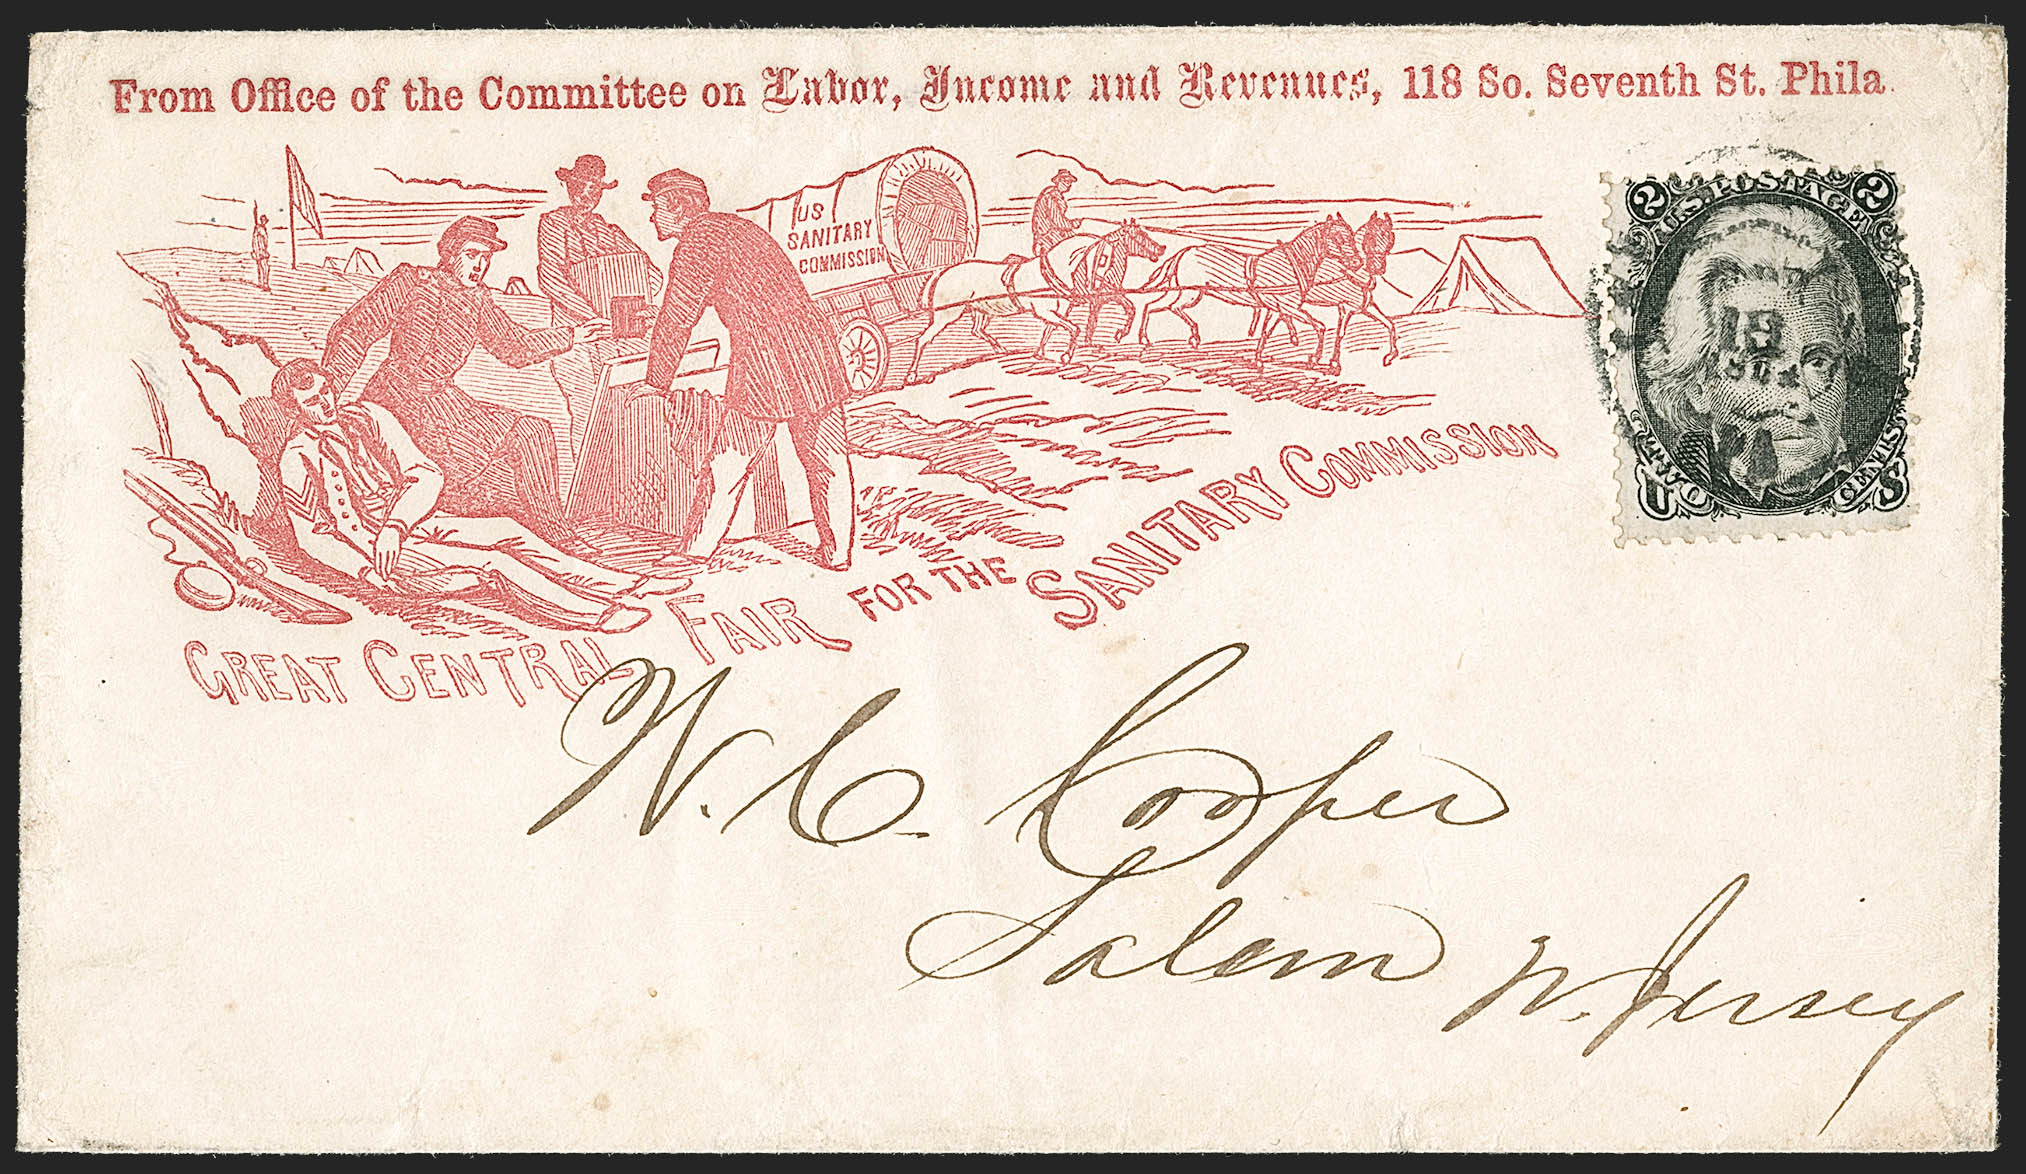 From Office of the Committee on Labor, Income and Revenues, 118 So. Seventh St. Phila.
US
SANITARY
COMMISSION
GREAT CENTRAL FAIR FOR THE SANITARY COMMISSION
2 U.S. POSTAGE 2
U CENTS S
W. C. Cooper
Salem N. Jersey